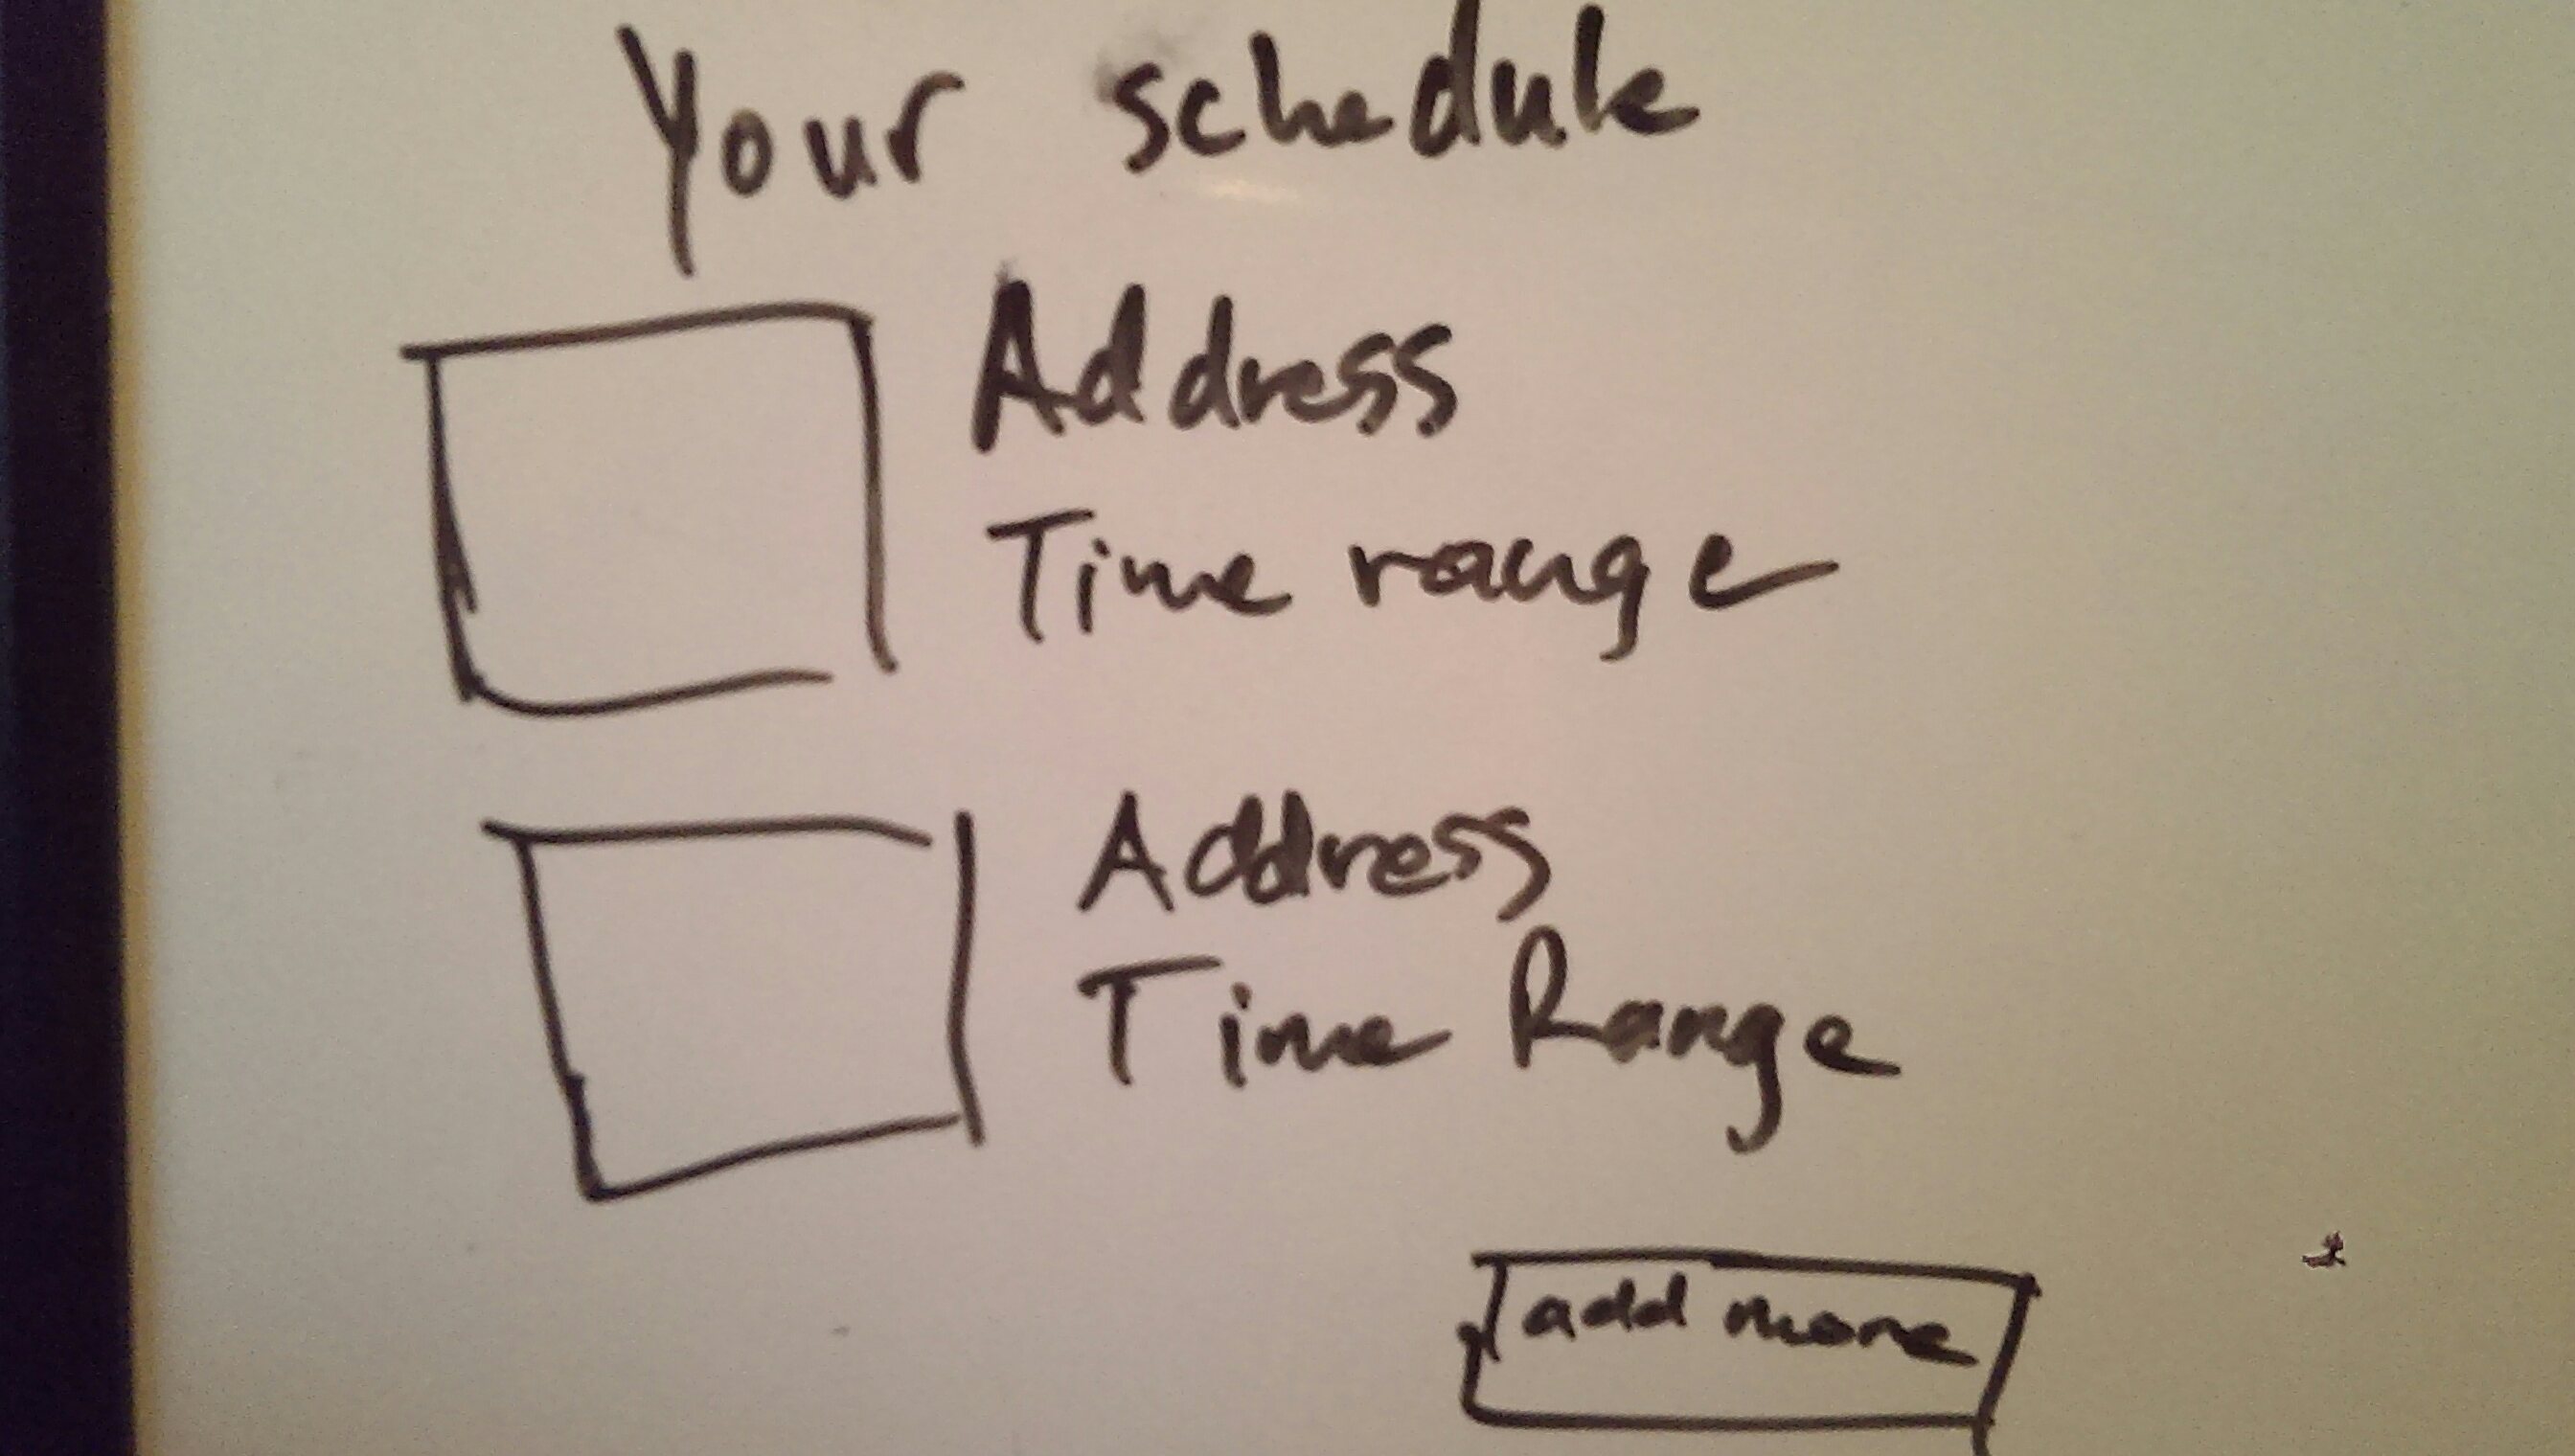 Your schedule
Address
Time range
Address
Time Range
add more